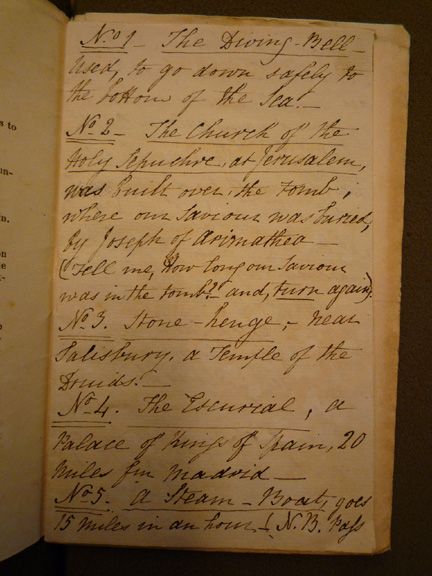 No 1 - The Diving-Bell -
Used, to go down safely to
the bottom of the Sea. -
No 2 - The Church of the
Holy Sepuchre, at Jerusalem,
was built over the tomb,
where our Saviour was buried,
by Joseph of Arimathea -
(Tell me, How long our Saviour
was in the tomb? - and, turn again).
No 3. Stone-henge, - near
Salisbury. a Temple of the
Druids. -
No 4. The Escurial, a
Palace of Kings of Spain, 20
miles fm Madrid -
No 5. a Steam-Boat, goes
15 miles in an hour - (N.B. Pass
a to
un-
n.
on
e